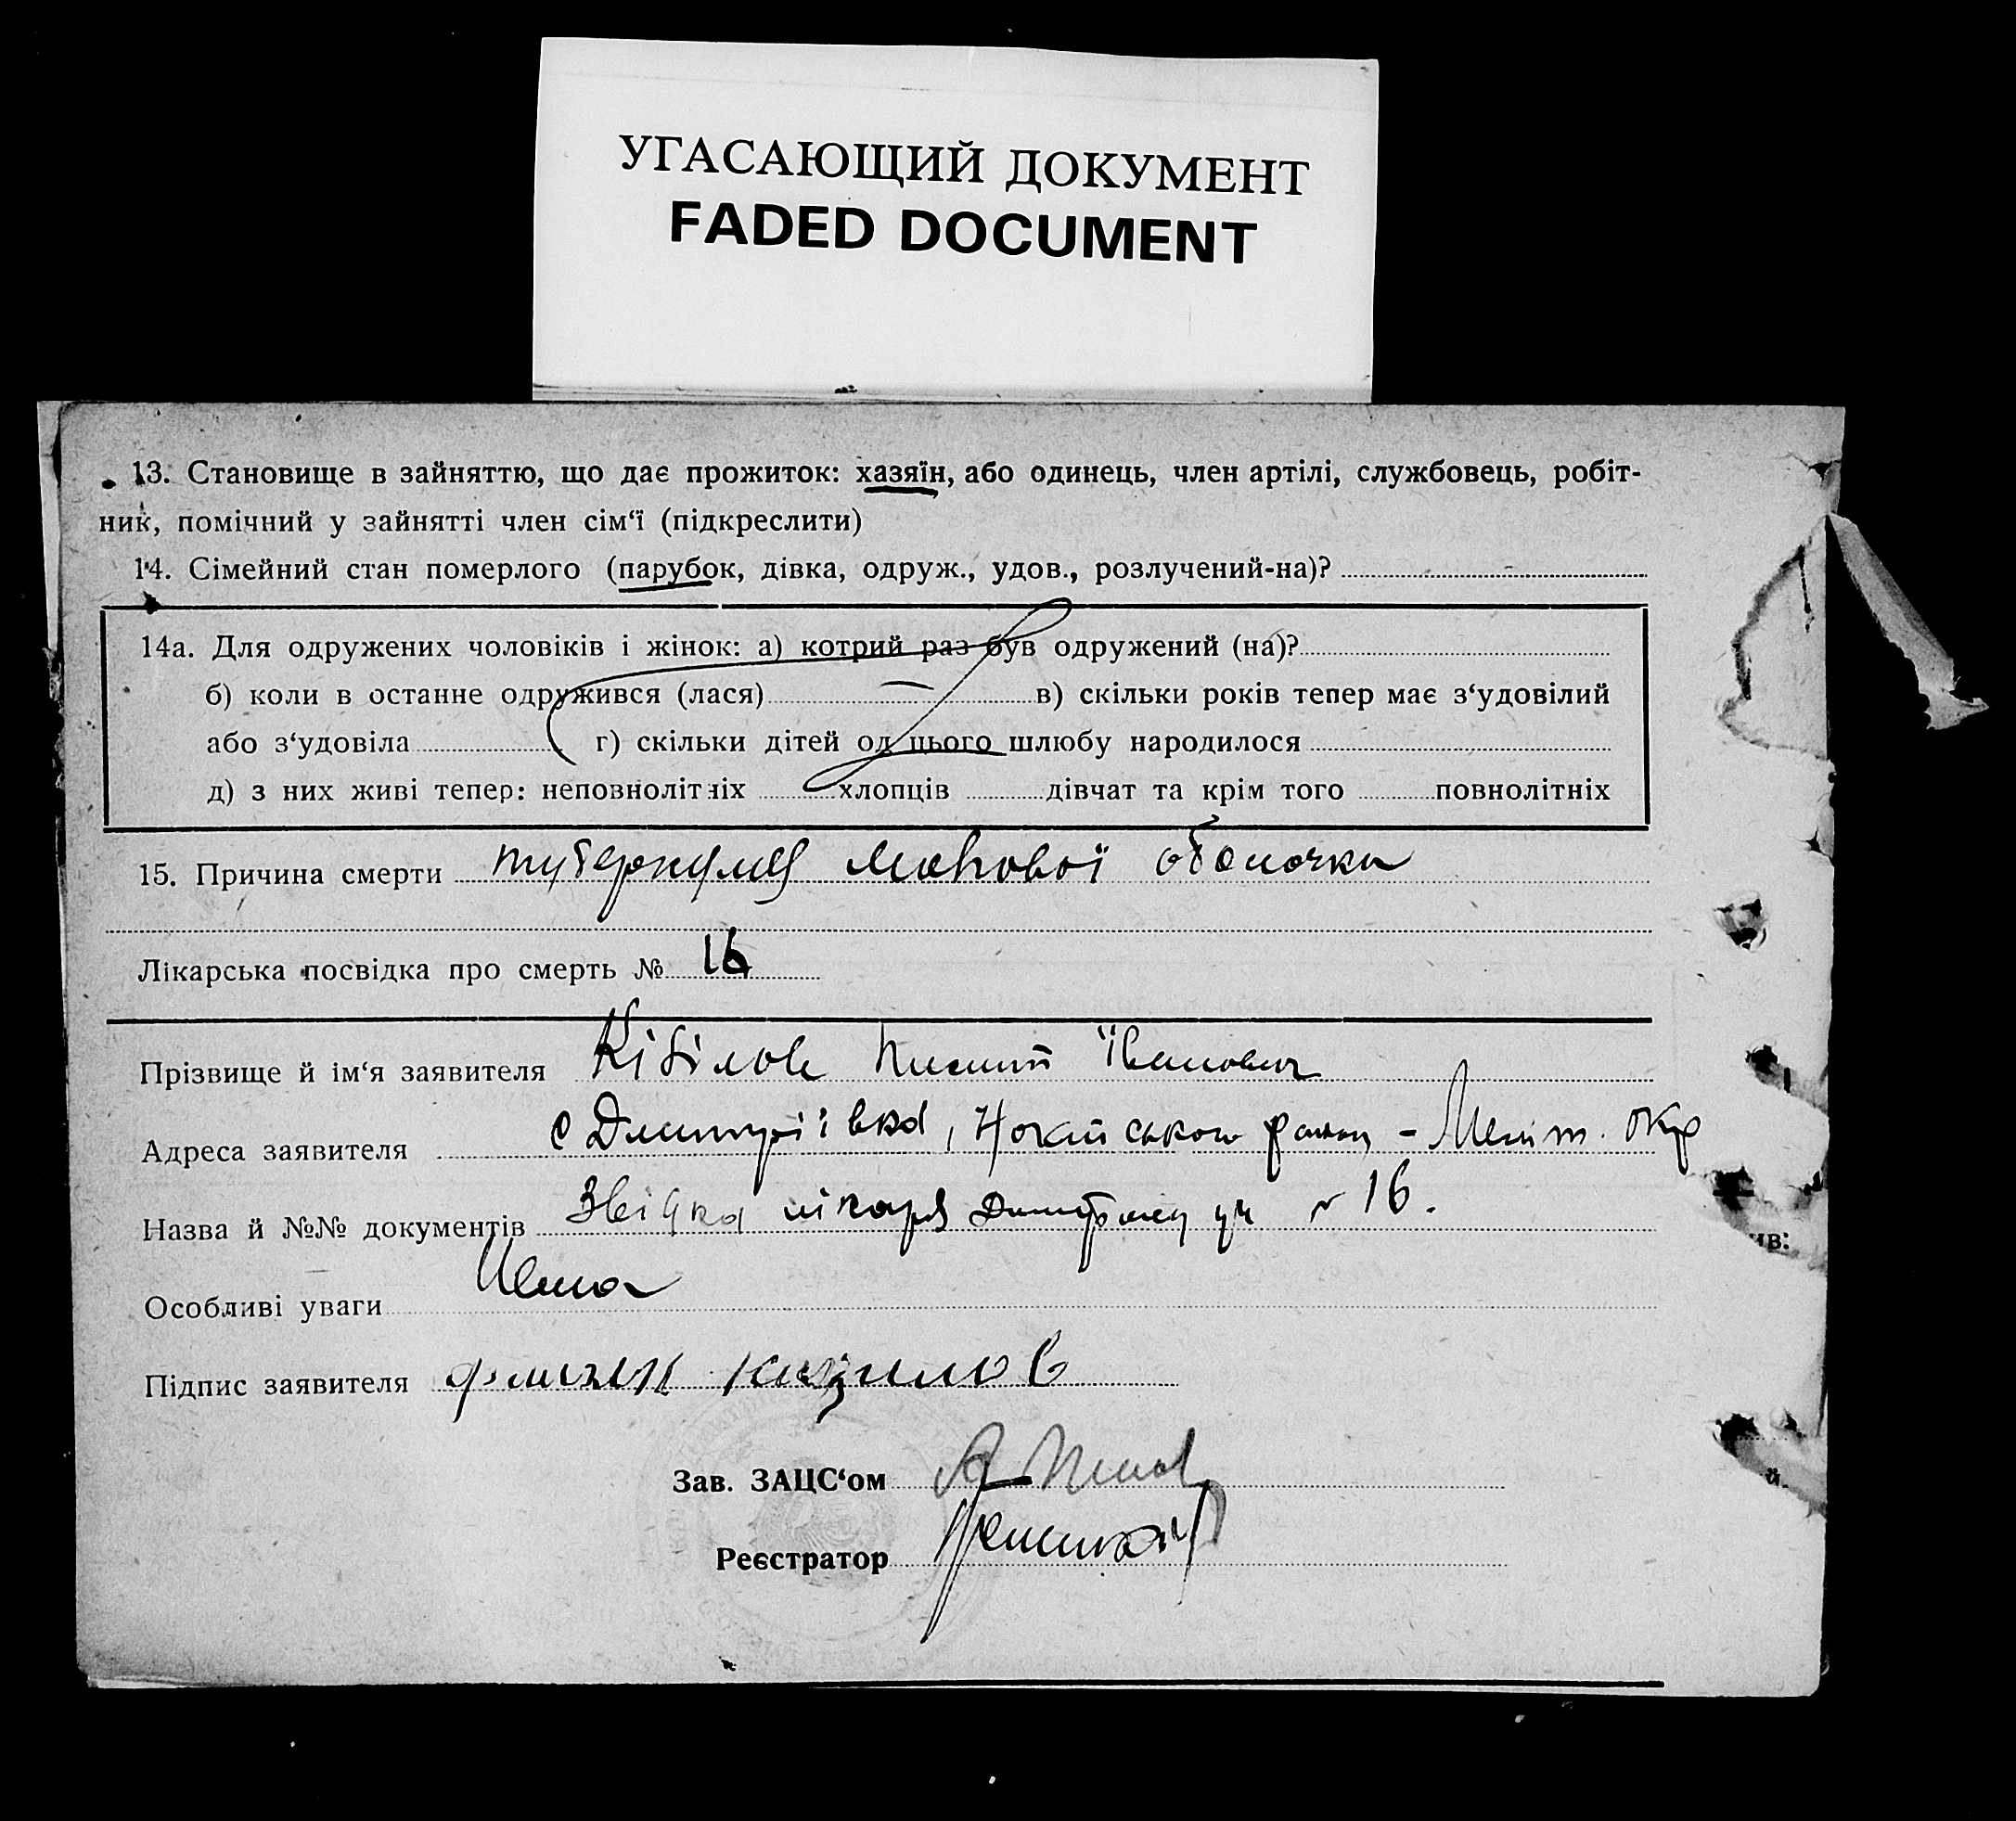 УГАСАЮЩИЙ ДОКУМЕНТ
FADED DOCUMENT
13. Становище в зайняттю, що дає прожиток: хазяїн, або одинець, член артілі, службовець, робіт-
ник, помічний у зайнятті член сім‘ї (підкреслити)
14. Сімейний стан померлого (парубок, дівка, одруж., удов., розлучений-на)?
14а. Для одружених чоловіків і жінок: а) котрий раз був одружений (на)?
б) коли в останне одружився (лася) в) скільки років тепер має з‘удовілий
або з‘удовіла г) скільки дітей од цього шлюбу народилося
д) з них живі тепер: неповнолітніх хлопців дівчат та крім того повнолітніх
15. Причина смерти туберкульоз мозкової оболочки
Лікарська посвідка про смерть № 16
Прізвище й ім‘я заявителя Іванович
Адреса заявителя с Дмитріївка, Ногайського району - Меліт. Окр
Назва й №№ документів Звідка лікаря № 16.
Особливі уваги Нема
Підпис заявителя
Зав. ЗАЦС‘ом
Реєстратор
ив:
й.